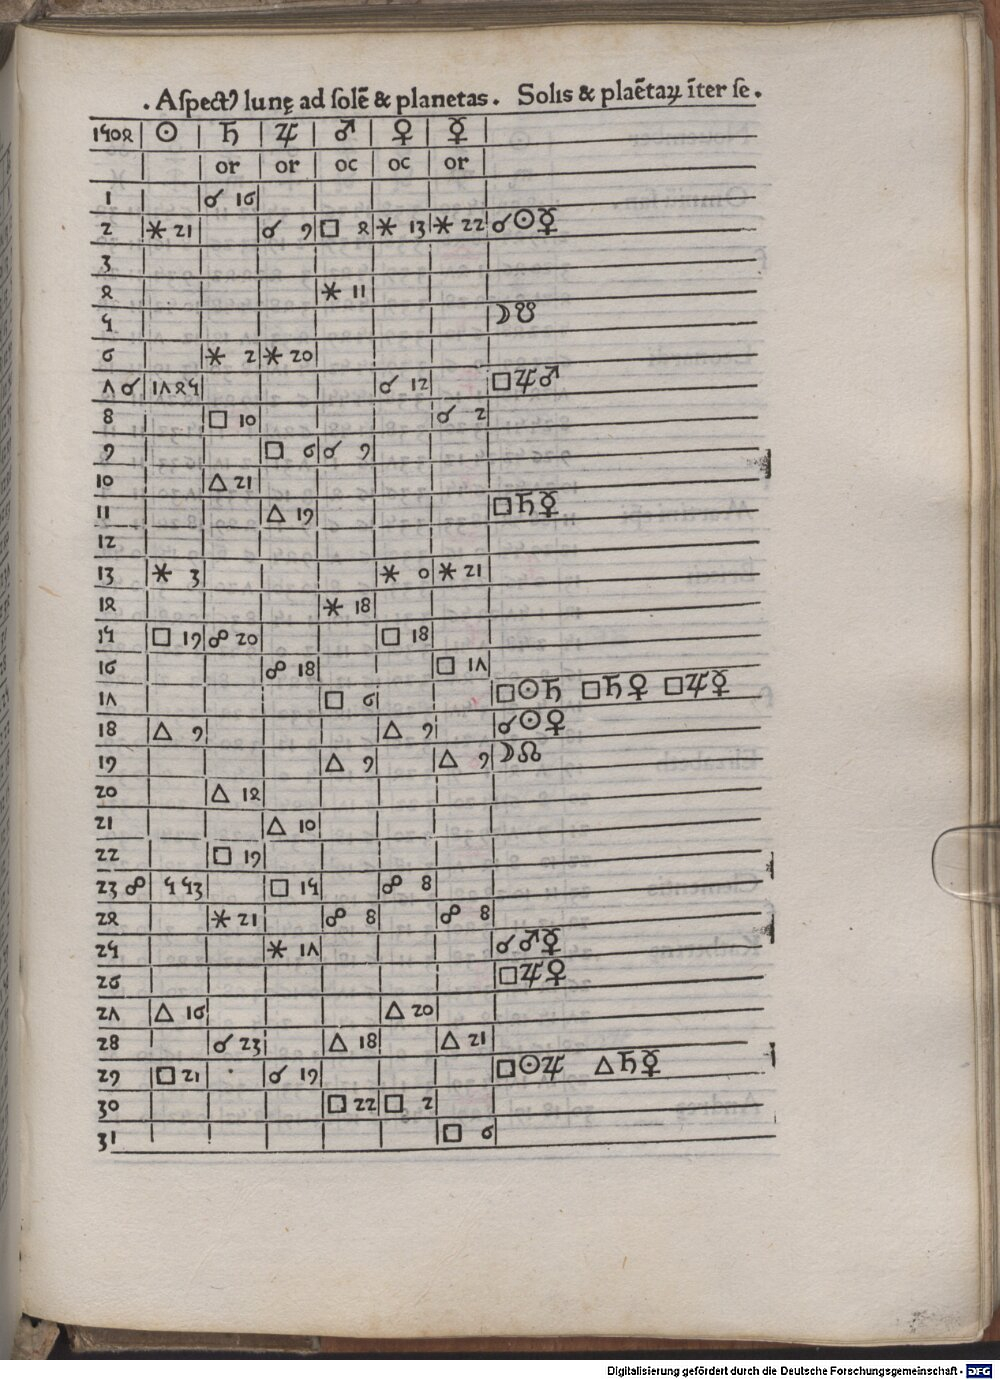 . Aſpectꝰ lunę ad ſolē & planetas . Solis & plaētaꝝ īter ſe .
1504 | ☉ | ♄ | ♃ | ♂ | ♀ | ☿ |
| | or | or | oc | oc | or |
1 | | ☌ 16 | | | | |
2 | ⚹ 21 | | ☌ 9 | □ 4 | ⚹ 13 | ⚹ 22 | ☌☉☿
3
4 | | | | ⚹ 11 | | |
5 | | | | | | | ☽☋
6 | | ⚹ 2 | ⚹ 20 | | | |
7 ☌ | 17 45 | | | | ☌ 12 | | □♃♂
8 | | □ 10 | | | | ☌ 2 |
9 | | | □ 6 | ☌ 9 | | |
10 | | △ 21 | | | | |
11 | | | △ 19 | | | | □♄☿
12
13 | ⚹ 3 | | | | ⚹ 0 | ⚹ 21 |
14 | | | | ⚹ 18 | | |
15 | □ 19 | ☍ 20 | | | □ 18 | |
16 | | | ☍ 18 | | | □ 17 |
17 | | | | □ 6 | | | □☉♄ □♄♀ □♃☿
18 | △ 9 | | | | △ 9 | | ☌☉♀
19 | | | | △ 9 | | △ 9 | ☽☊
20 | | △ 14 | | | | |
21 | | | △ 10 | | | |
22 | | □ 19 | | | | |
23 ☍ | 5 53 | | □ 15 | | ☍ 8 | |
24 | | ⚹ 21 | | ☍ 8 | | ☍ 8 |
25 | | | ⚹ 17 | | | | ☌♂☿
26 | | | | | | | □♃♀
27 | △ 16 | | | | △ 20 | |
28 | | ☌ 23 | | △ 18 | | △ 21 |
29 | □ 21 | | ☌ 19 | | | | □☉♃ △♄☿
30 | | | | □ 22 | □ 2 | |
31 | | | | | | □ 6 |
Digitalisierung gefördert durch die Deutsche Forschungsgemeinschaft - DFG